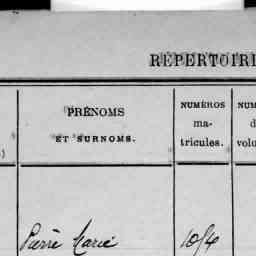 RÉPERTOIR
PRÉNOMS
ET SURNOMS.
NUMÉROS
ma-
tricules.
Pierre Marie
1054